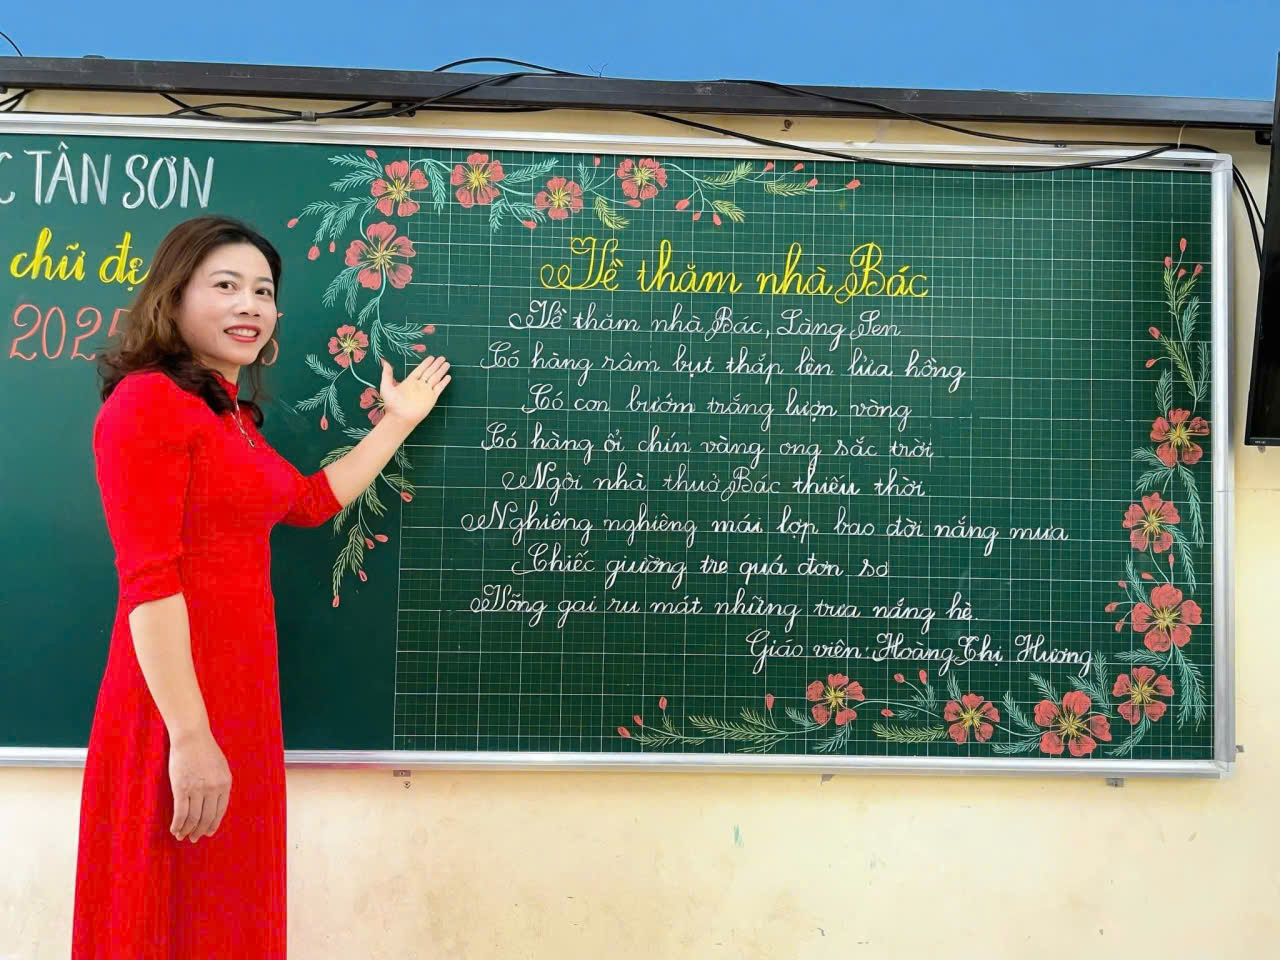 C TÂN SƠN
chữ đẹ
2025
Về thăm nhà Bác
Về thăm nhà Bác, Làng Sen
Có hàng râm bụt thắp lên lửa hồng
Có con bướm trắng lượn vòng
Có hàng ổi chín vàng ong sắc trời
Ngôi nhà thuở Bác thiếu thời
Nghiêng nghiêng mái lợp bao đời nắng mưa
Chiếc giường tre quá đơn sơ
Võng gai ru mát những trưa nắng hè.
Giáo viên: Hoàng Thị Hương